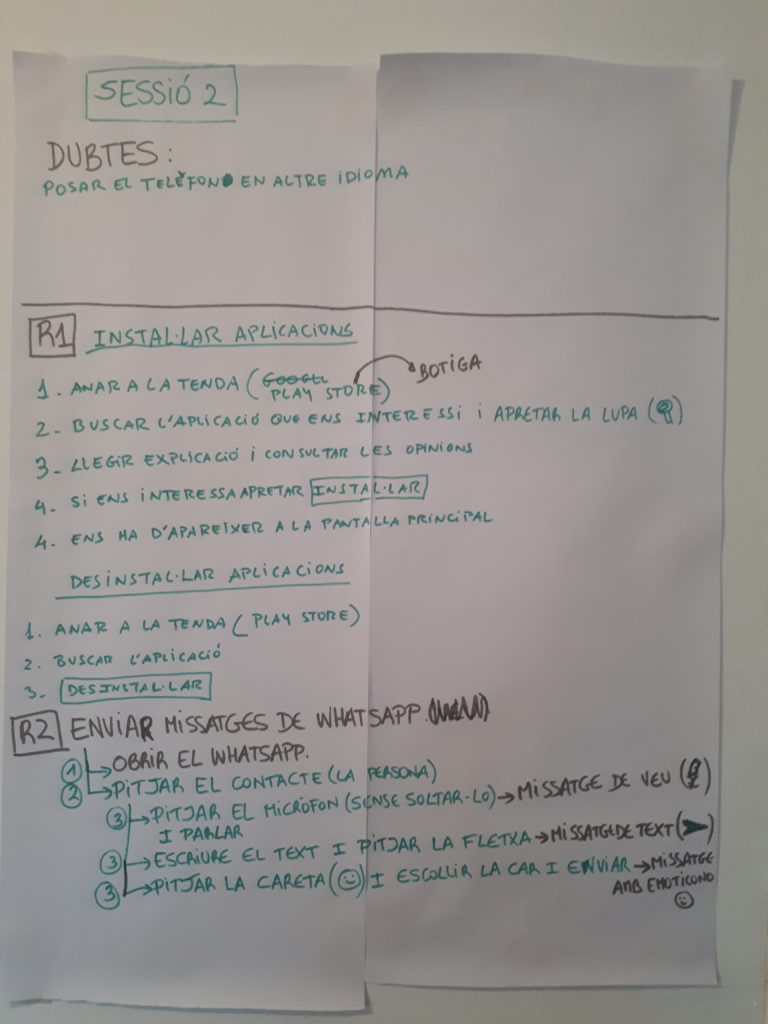 SESSIÓ 2
DUBTES:
POSAR EL TELÈFON EN ALTRE IDIOMA
R1 INSTAL·LAR APLICACIONS
1. ANAR A LA TENDA (GOOGLE PLAY STORE) BOTIGA
2. BUSCAR L'APLICACIÓ QUE ENS INTERESSI I APRETAR LA LUPA ()
3. LLEGIR EXPLICACIÓ I CONSULTAR LES OPINIONS
4. SI ENS INTERESSA APRETAR INSTAL·LAR
4. ENS HA D'APAREÌXER A LA PANTALLA PRINCIPAL
DESINSTAL·LAR APLICACIONS
1. ANAR A LA TENDA (PLAY STORE)
2. BUSCAR L'APLICACIÓ
3. DESINSTAL·LAR
R2 ENVIAR MISSATGES DE WHATSAPP.
1 OBRIR EL WHATSAPP.
2 PITJAR EL CONTACTE (LA PERSONA)
3 PITJAR EL MICRÒFON (SENSE SOLTAR-LO) → MISSATGE DE VEU ()
I PARLAR
3 ESCRIURE EL TEXT I PITJAR LA FLETXA → MISSATGE DE TEXT (➤)
3 PITJAR LA CARETA (☺) I ESCOLLIR LA CAR I ENVIAR → MISSATGE
AMB EMOTICONO
☺